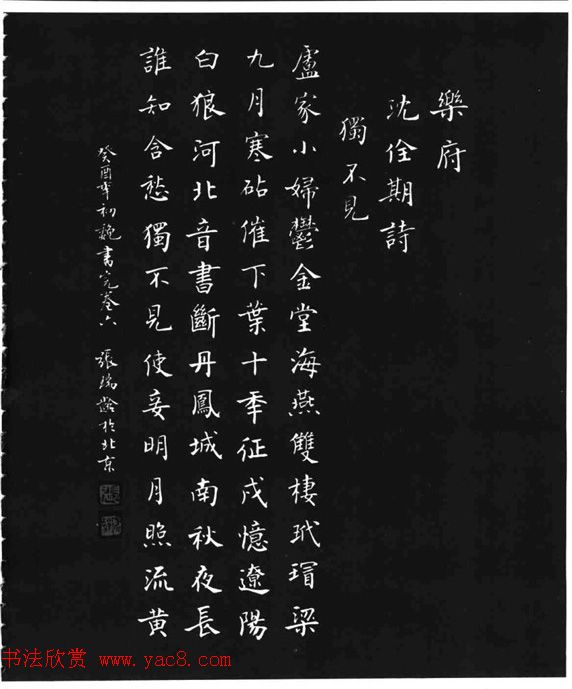 樂府
沈佺期詩
獨不見
盧家小婦鬱金堂海燕雙棲玳瑁梁
九月寒砧催下葉十年征戍憶遼陽
白狼河北音書斷丹鳳城南秋夜長
誰知含愁獨不見使妾明月照流黃
癸酉年初魏書完卷六 張瑞齡於北京
书法欣赏 www.yac8.com